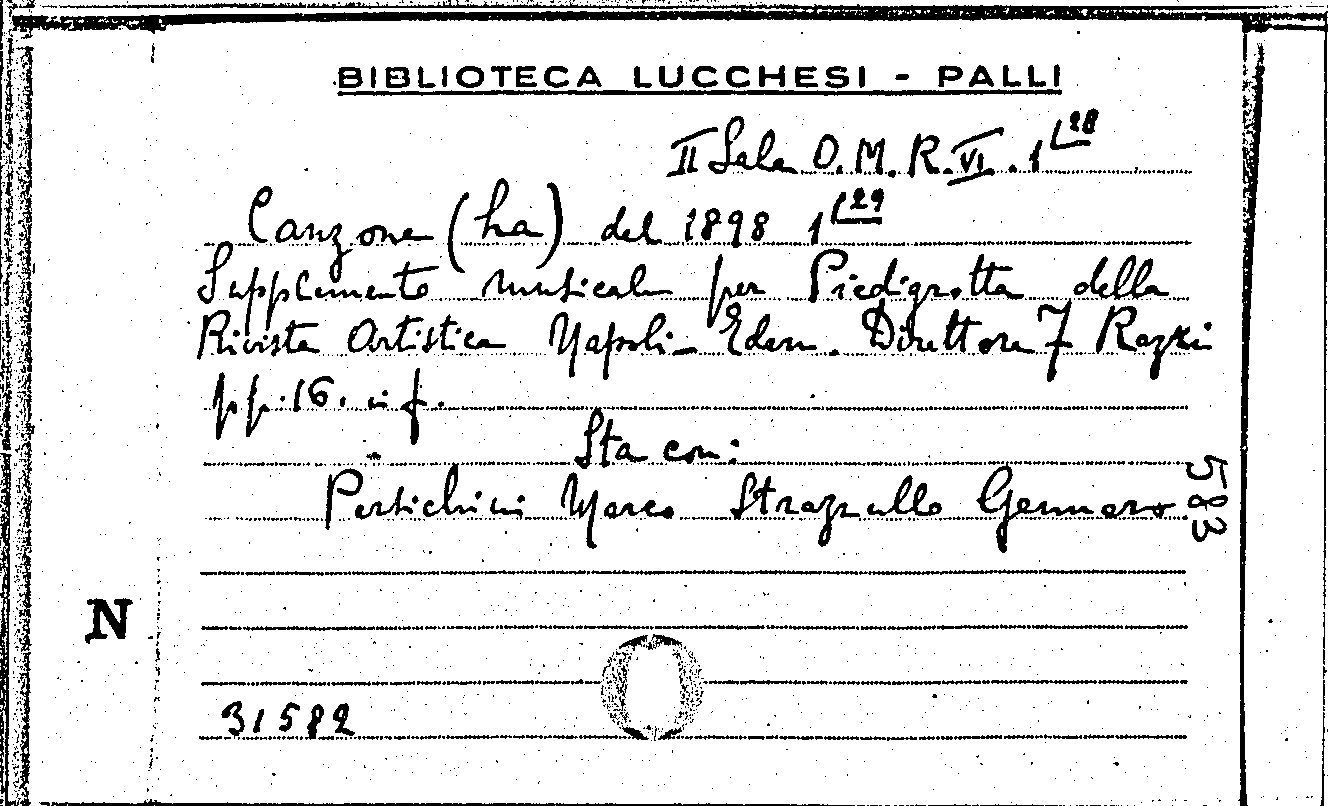 BIBLIOTECA LUCCHESI - PALLI
II Sala O. M. R. VI. 1 28
Canzone (La) del 1898 1 29
Supplemento musicale per Piedigrotta della
Rivista Artistica Napoli - Edem. Direttore F Razzi
pp. 16. in f.
Sta con:
Pertichini Marco Strazzullo Gennaro.
583
N
31582